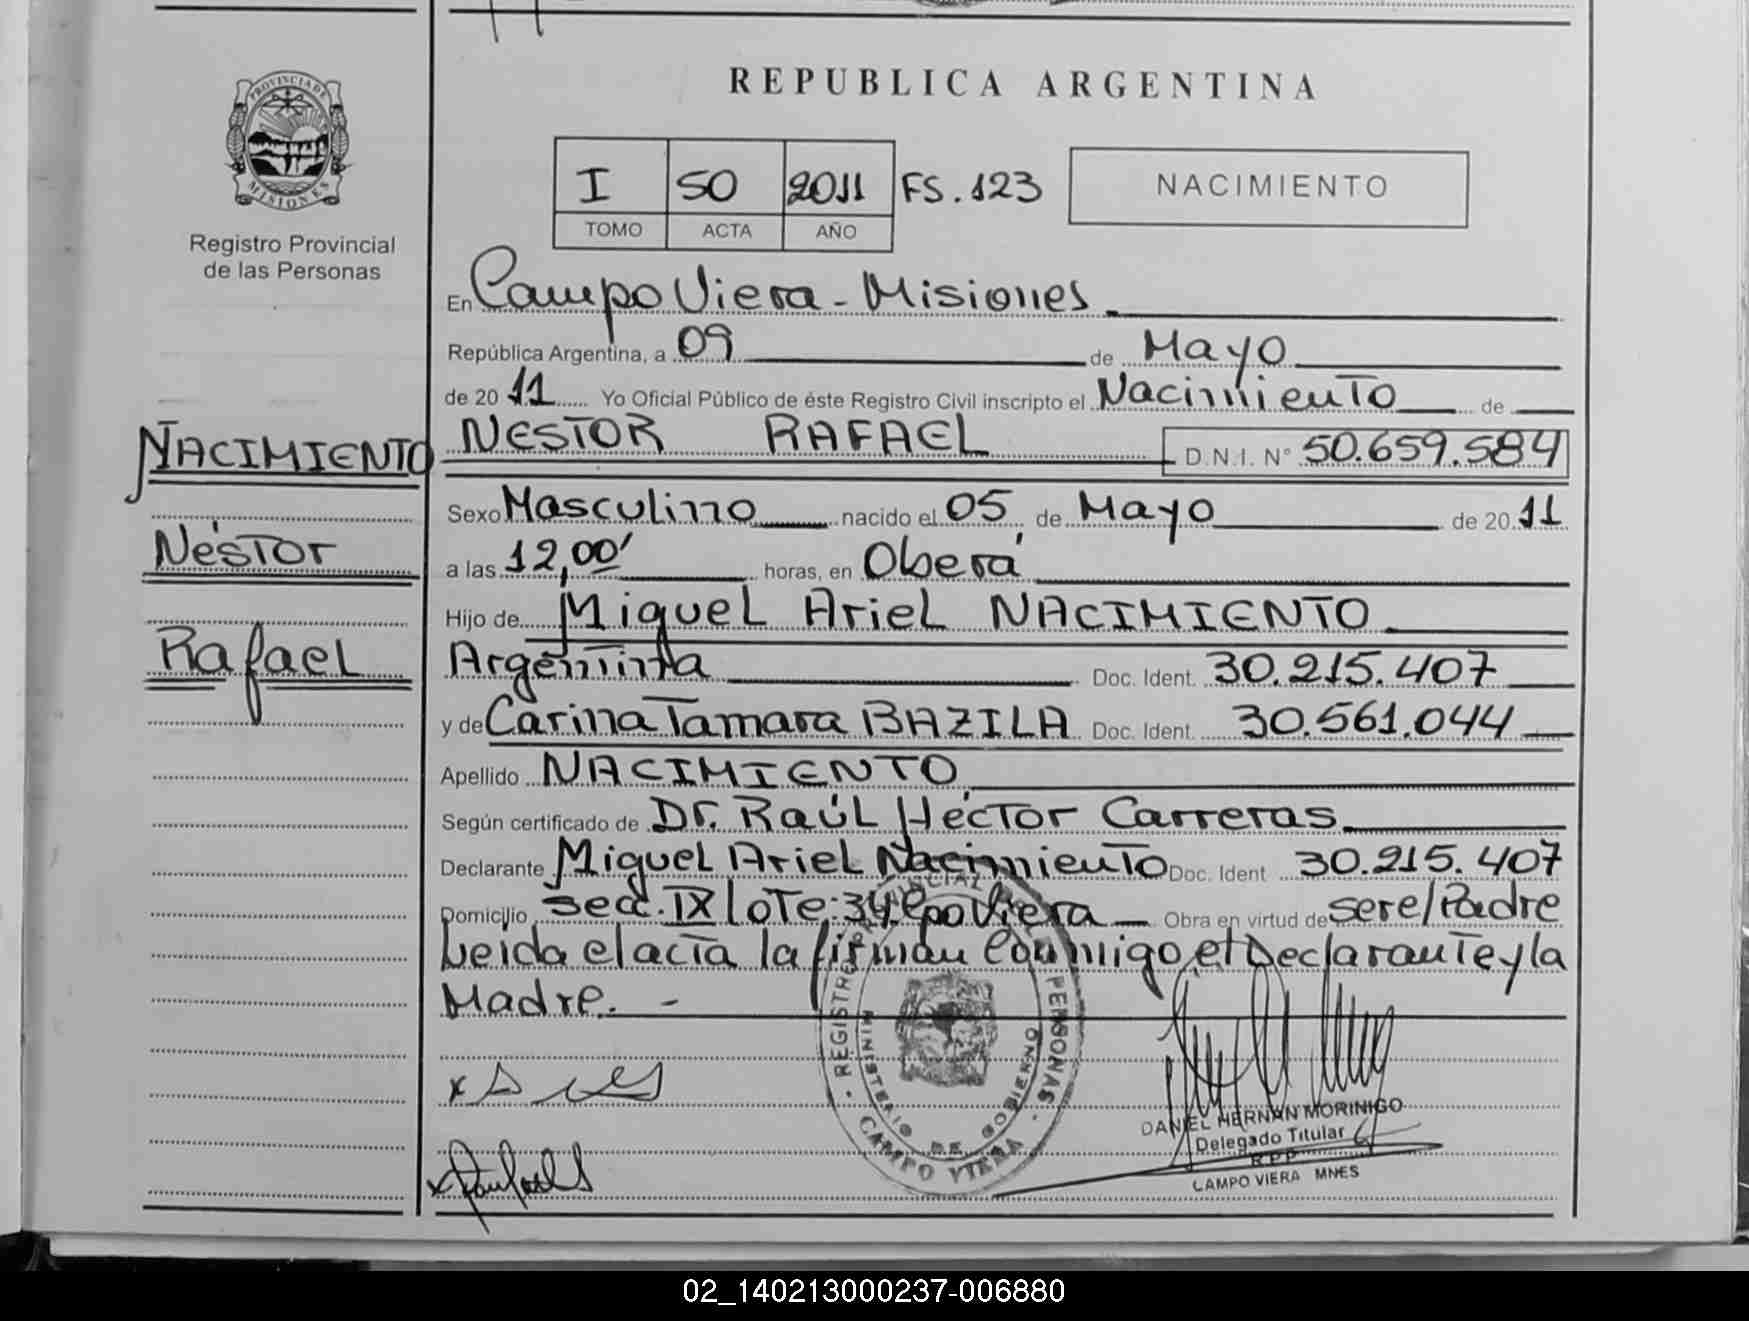 REPUBLICA ARGENTINA
PROVINCIA DE MISIONES
Registro Provincial
de las Personas
I 50 2011 FS. 123
TOMO ACTA AÑO
NACIMIENTO
En Campo Viera - Misiones
República Argentina, a 09 de Mayo
de 20 11 Yo Oficial Público de éste Registro Civil inscripto el Nacimiento de
NESTOR RAFAEL D.N.I. N° 50.659.584
NACIMIENTO
Néstor
Rafael
Sexo Masculino nacido el 05 de Mayo de 20 11
a las 12,00' horas, en Oberá
Hijo de Miguel Ariel NACIMIENTO
Argentina Doc. Ident. 30.215.407
y de Carina Tamara BAZILA Doc. Ident. 30.561.044
Apellido NACIMIENTO
Según certificado de Dr. Raúl Héctor Carreras
Declarante Miguel Ariel Nacimiento Doc. Ident 30.215.407
Domicilio secc. IX Lote: 34 Cpo Viera Obra en virtud de sere/Padre
Leida el acta la firman Conmigo, el Declarante y la
Madre. -
REGISTRO PROVINCIAL PERSONAS
MINISTERIO DE GOBIERNO
CAMPO VIERA
DANIEL HERNAN MORINIGO
Delegado Titular
R.P.P.
CAMPO VIERA MNES
02_140213000237-006880